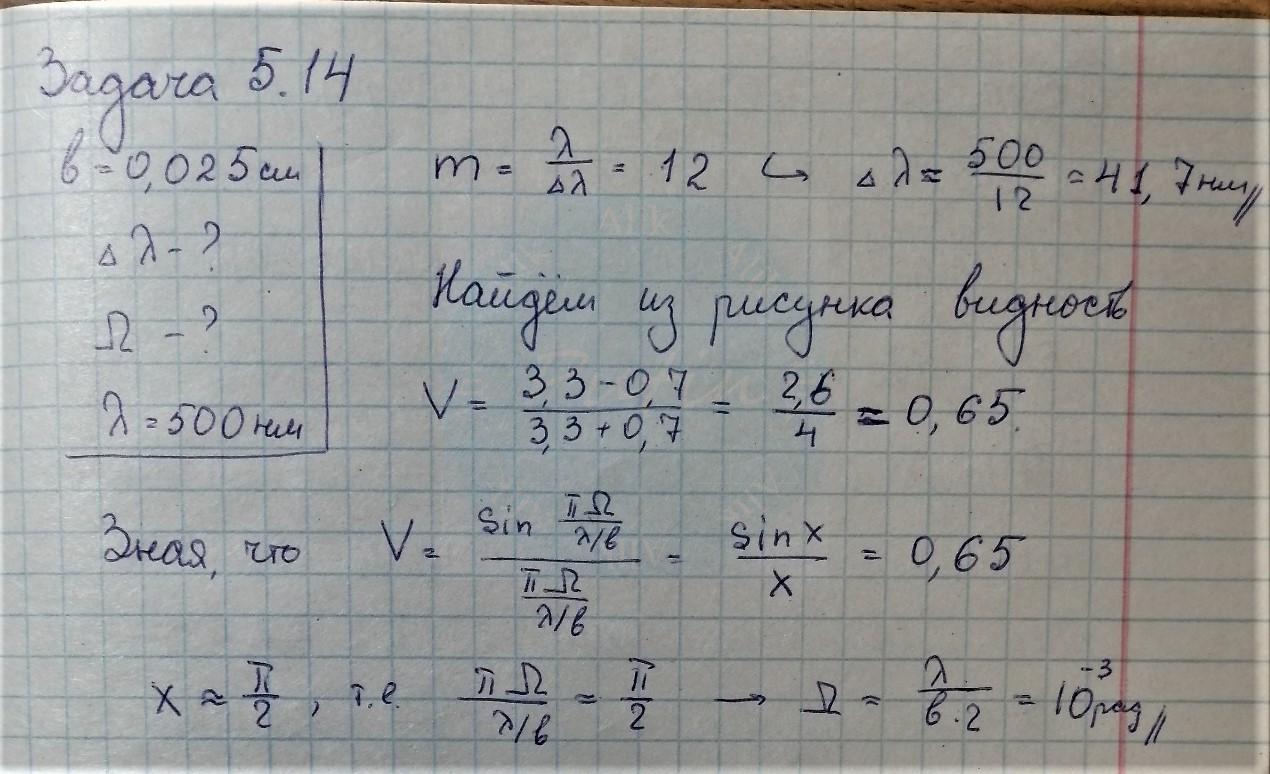 Задача 5.14
b = 0,025 см
Δλ - ?
Ω - ?
λ = 500 нм
m = λ/Δλ = 12 ↪ Δλ = 500/12 = 41,7 нм //
Найдём из рисунка видность
V = (3,3 - 0,7)/(3,3 + 0,7) = 2,6/4 = 0,65.
Зная, что V = (sin (πΩ/(λ/b)))/(πΩ/(λ/b)) = sin x/x = 0,65
x ≈ π/2, т.е. πΩ/(λ/b) = π/2 → Ω = λ/(b·2) = 10⁻³ рад //